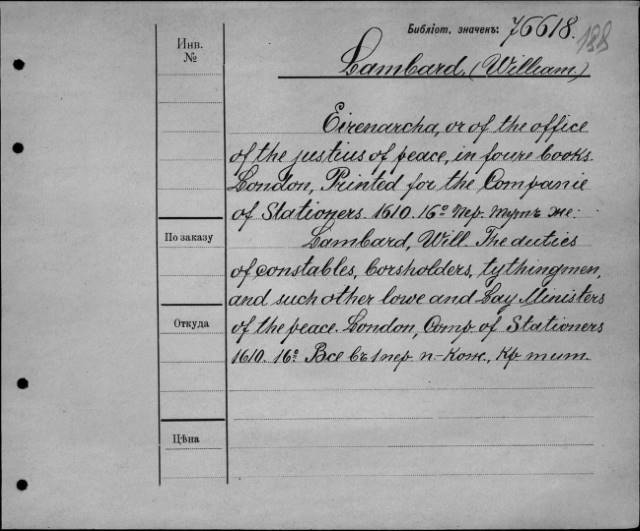 Библіот. значекъ: 76618.
188
Инв.
№
Lambard, (William.)
Eirenarcha, or of the office
of the justius of peace, in foure books.
London, Printed for the Companie
of Stationers. 1610. 16º пер. тутъ же:
По заказу
Lambard, Will. The duties
of constables, borsholders, tythingmen,
and such other lowe and Lay Ministers
Откуда
of the peace. London, Comp. of Stationers
1610. 16º. Все въ 1 пер. п-кож., кр тит.
Цѣна